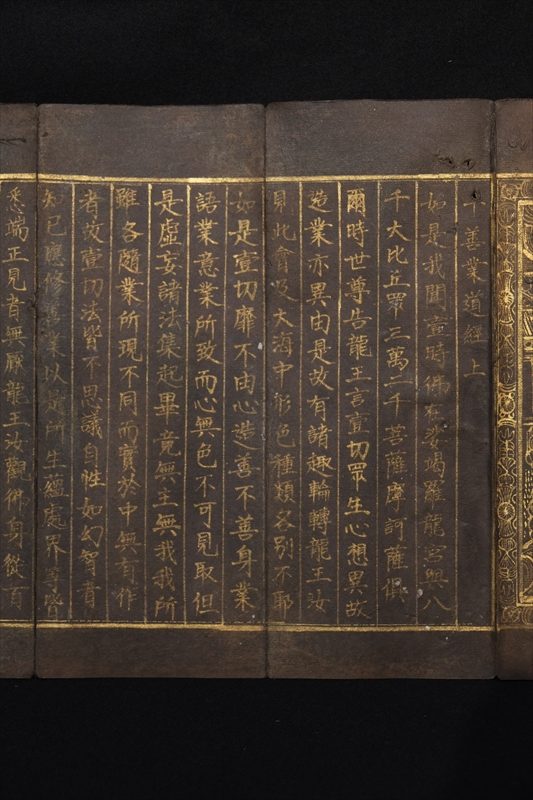 十善業道經上
如是我聞壹時佛在娑竭羅龍宮與八
千大比丘眾三萬二千菩薩摩訶薩俱
爾時世尊告龍王言壹切眾生心想異故
造業亦異由是故有諸趣輪轉龍王汝
見此會及大海中形色種類各別不耶
如是壹切靡不由心造善不善身業
語業意業所致而心無色不可見取但
是虛妄諸法集起畢竟無主無我我所
雖各隨業所現不同而實於中無有作
者故壹切法皆不思議自性如幻智者
知已應修善業以是所生蘊處界等皆
悉端正見者無厭龍王汝觀佛身從百